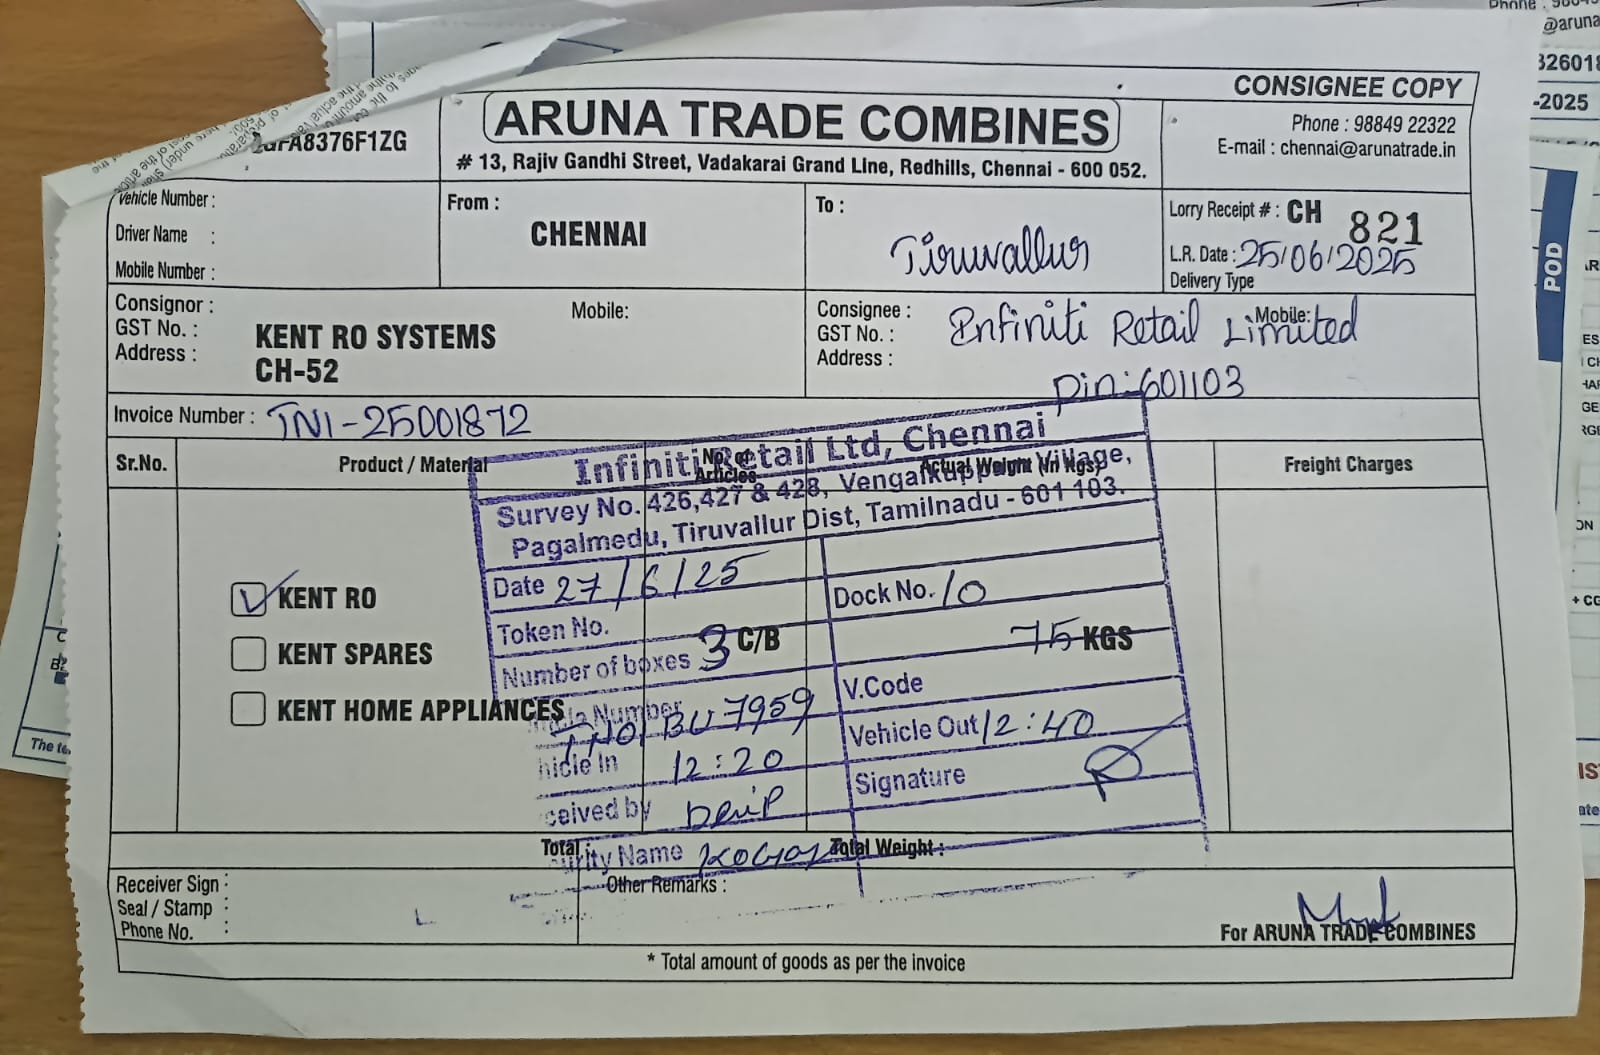 CONSIGNEE COPY
ARUNA TRADE COMBINES
# 13, Rajiv Gandhi Street, Vadakarai Grand Line, Redhills, Chennai - 600 052.
Phone : 98849 22322
E-mail : chennai@arunatrade.in
A8376F1ZG
Vehicle Number :
Driver Name :
Mobile Number :
From :
CHENNAI
To :
Tiruvallur
Lorry Receipt # : CH 821
L.R. Date : 25/06/2025
Delivery Type
Consignor :
GST No. :
Address :
Mobile:
KENT RO SYSTEMS
CH-52
Consignee :
GST No. :
Address :
Mobile:
Infiniti Retail Limited
Pin:-601103
Invoice Number : TN1-25001872
Sr.No.
Product / Material
No. of Articles
Actual Weight (in Kgs)
Freight Charges
KENT RO
KENT SPARES
KENT HOME APPLIANCES
3 C/B
75 KGS
Infiniti Retail Ltd, Chennai
Survey No. 426,427 & 428, Vengalkuppam Village,
Pagalmedu, Tiruvallur Dist, Tamilnadu - 601 103.
Date 27/6/25
Dock No. 10
Token No.
Number of boxes
V.Code
Number
BU 7959
Vehicle Out 12:40
hicle In 12:20
Signature
ceived by
urity Name
Total
Total Weight :
Receiver Sign :
Seal / Stamp :
Phone No. :
Other Remarks :
For ARUNA TRADE COMBINES
* Total amount of goods as per the invoice
POD
@aruna
-2025